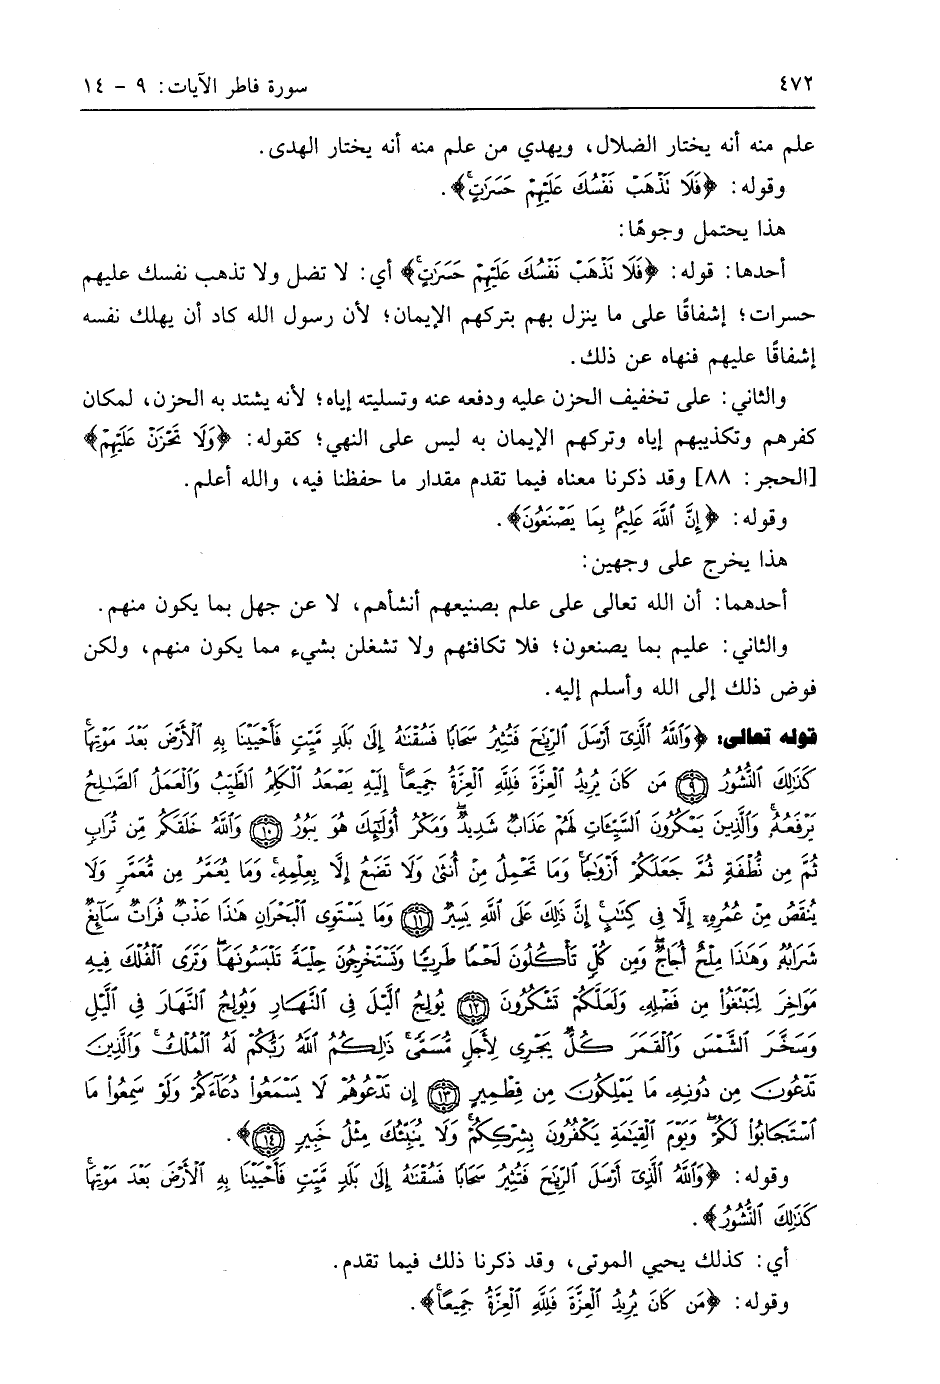 ٤٧٢ سورة فاطر الآيات: ٩ - ١٤
علم منه أنه يختار الضلال، ويهدي من علم منه أنه يختار الهدى.
وقوله: ﴿فَلَا تَذْهَبْ نَفْسُكَ عَلَيْهِمْ حَسَرَٰتٍۚ﴾.
هذا يحتمل وجوهًا:
أحدها: قوله: ﴿فَلَا تَذْهَبْ نَفْسُكَ عَلَيْهِمْ حَسَرَٰتٍۚ﴾ أي: لا تضل ولا تذهب نفسك عليهم
حسرات؛ إشفاقًا على ما ينزل بهم بتركهم الإيمان؛ لأن رسول الله كاد أن يهلك نفسه
إشفاقًا عليهم فنهاه عن ذلك.
والثاني: على تخفيف الحزن عليه ودفعه عنه وتسليته إياه؛ لأنه يشتد به الحزن، لمكان
كفرهم وتكذيبهم إياه وتركهم الإيمان به ليس على النهي؛ كقوله: ﴿وَلَا تَحْزَنْ عَلَيْهِمْ﴾
[الحجر: ٨٨] وقد ذكرنا معناه فيما تقدم مقدار ما حفظنا فيه، والله أعلم.
وقوله: ﴿إِنَّ ٱللَّهَ عَلِيمٌۢ بِمَا يَصْنَعُونَ﴾.
هذا يخرج على وجهين:
أحدهما: أن الله تعالى على علم بصنيعهم أنشأهم، لا عن جهل بما يكون منهم.
والثاني: عليم بما يصنعون؛ فلا تكافئهم ولا تشغلن بشيء مما يكون منهم، ولكن
فوض ذلك إلى الله وأسلم إليه.
قوله تعالى: ﴿وَٱللَّهُ ٱلَّذِىٓ أَرْسَلَ ٱلرِّيَٰحَ فَتُثِيرُ سَحَابًا فَسُقْنَٰهُ إِلَىٰ بَلَدٍ مَّيِّتٍ فَأَحْيَيْنَا بِهِ ٱلْأَرْضَ بَعْدَ مَوْتِهَاۚ
كَذَٰلِكَ ٱلنُّشُورُ ۝٩ مَن كَانَ يُرِيدُ ٱلْعِزَّةَ فَلِلَّهِ ٱلْعِزَّةُ جَمِيعًاۚ إِلَيْهِ يَصْعَدُ ٱلْكَلِمُ ٱلطَّيِّبُ وَٱلْعَمَلُ ٱلصَّٰلِحُ
يَرْفَعُهُۥۚ وَٱلَّذِينَ يَمْكُرُونَ ٱلسَّيِّـَٔاتِ لَهُمْ عَذَابٌ شَدِيدٌۖ وَمَكْرُ أُو۟لَٰٓئِكَ هُوَ يَبُورُ ۝١٠ وَٱللَّهُ خَلَقَكُم مِّن تُرَابٍ
ثُمَّ مِن نُّطْفَةٍ ثُمَّ جَعَلَكُمْ أَزْوَٰجًاۚ وَمَا تَحْمِلُ مِنْ أُنثَىٰ وَلَا تَضَعُ إِلَّا بِعِلْمِهِۦۚ وَمَا يُعَمَّرُ مِن مُّعَمَّرٍ وَلَا
يُنقَصُ مِنْ عُمُرِهِۦٓ إِلَّا فِى كِتَٰبٍۚ إِنَّ ذَٰلِكَ عَلَى ٱللَّهِ يَسِيرٌ ۝١١ وَمَا يَسْتَوِى ٱلْبَحْرَانِ هَٰذَا عَذْبٌ فُرَاتٌ سَآئِغٌ
شَرَابُهُۥ وَهَٰذَا مِلْحٌ أُجَاجٌۖ وَمِن كُلٍّ تَأْكُلُونَ لَحْمًا طَرِيًّا وَتَسْتَخْرِجُونَ حِلْيَةً تَلْبَسُونَهَاۖ وَتَرَى ٱلْفُلْكَ فِيهِ
مَوَاخِرَ لِتَبْتَغُوا۟ مِن فَضْلِهِۦ وَلَعَلَّكُمْ تَشْكُرُونَ ۝١٢ يُولِجُ ٱلَّيْلَ فِى ٱلنَّهَارِ وَيُولِجُ ٱلنَّهَارَ فِى ٱلَّيْلِ
وَسَخَّرَ ٱلشَّمْسَ وَٱلْقَمَرَ كُلٌّ يَجْرِى لِأَجَلٍ مُّسَمًّىۚ ذَٰلِكُمُ ٱللَّهُ رَبُّكُمْ لَهُ ٱلْمُلْكُۚ وَٱلَّذِينَ
تَدْعُونَ مِن دُونِهِۦ مَا يَمْلِكُونَ مِن قِطْمِيرٍ ۝١٣ إِن تَدْعُوهُمْ لَا يَسْمَعُوا۟ دُعَآءَكُمْ وَلَوْ سَمِعُوا۟ مَا
ٱسْتَجَابُوا۟ لَكُمْۖ وَيَوْمَ ٱلْقِيَٰمَةِ يَكْفُرُونَ بِشِرْكِكُمْۚ وَلَا يُنَبِّئُكَ مِثْلُ خَبِيرٍ ۝١٤﴾.
وقوله: ﴿وَٱللَّهُ ٱلَّذِىٓ أَرْسَلَ ٱلرِّيَٰحَ فَتُثِيرُ سَحَابًا فَسُقْنَٰهُ إِلَىٰ بَلَدٍ مَّيِّتٍ فَأَحْيَيْنَا بِهِ ٱلْأَرْضَ بَعْدَ مَوْتِهَاۚ
كَذَٰلِكَ ٱلنُّشُورُ﴾.
أي: كذلك يحيي الموتى، وقد ذكرنا ذلك فيما تقدم.
وقوله: ﴿مَن كَانَ يُرِيدُ ٱلْعِزَّةَ فَلِلَّهِ ٱلْعِزَّةُ جَمِيعًاۚ﴾.